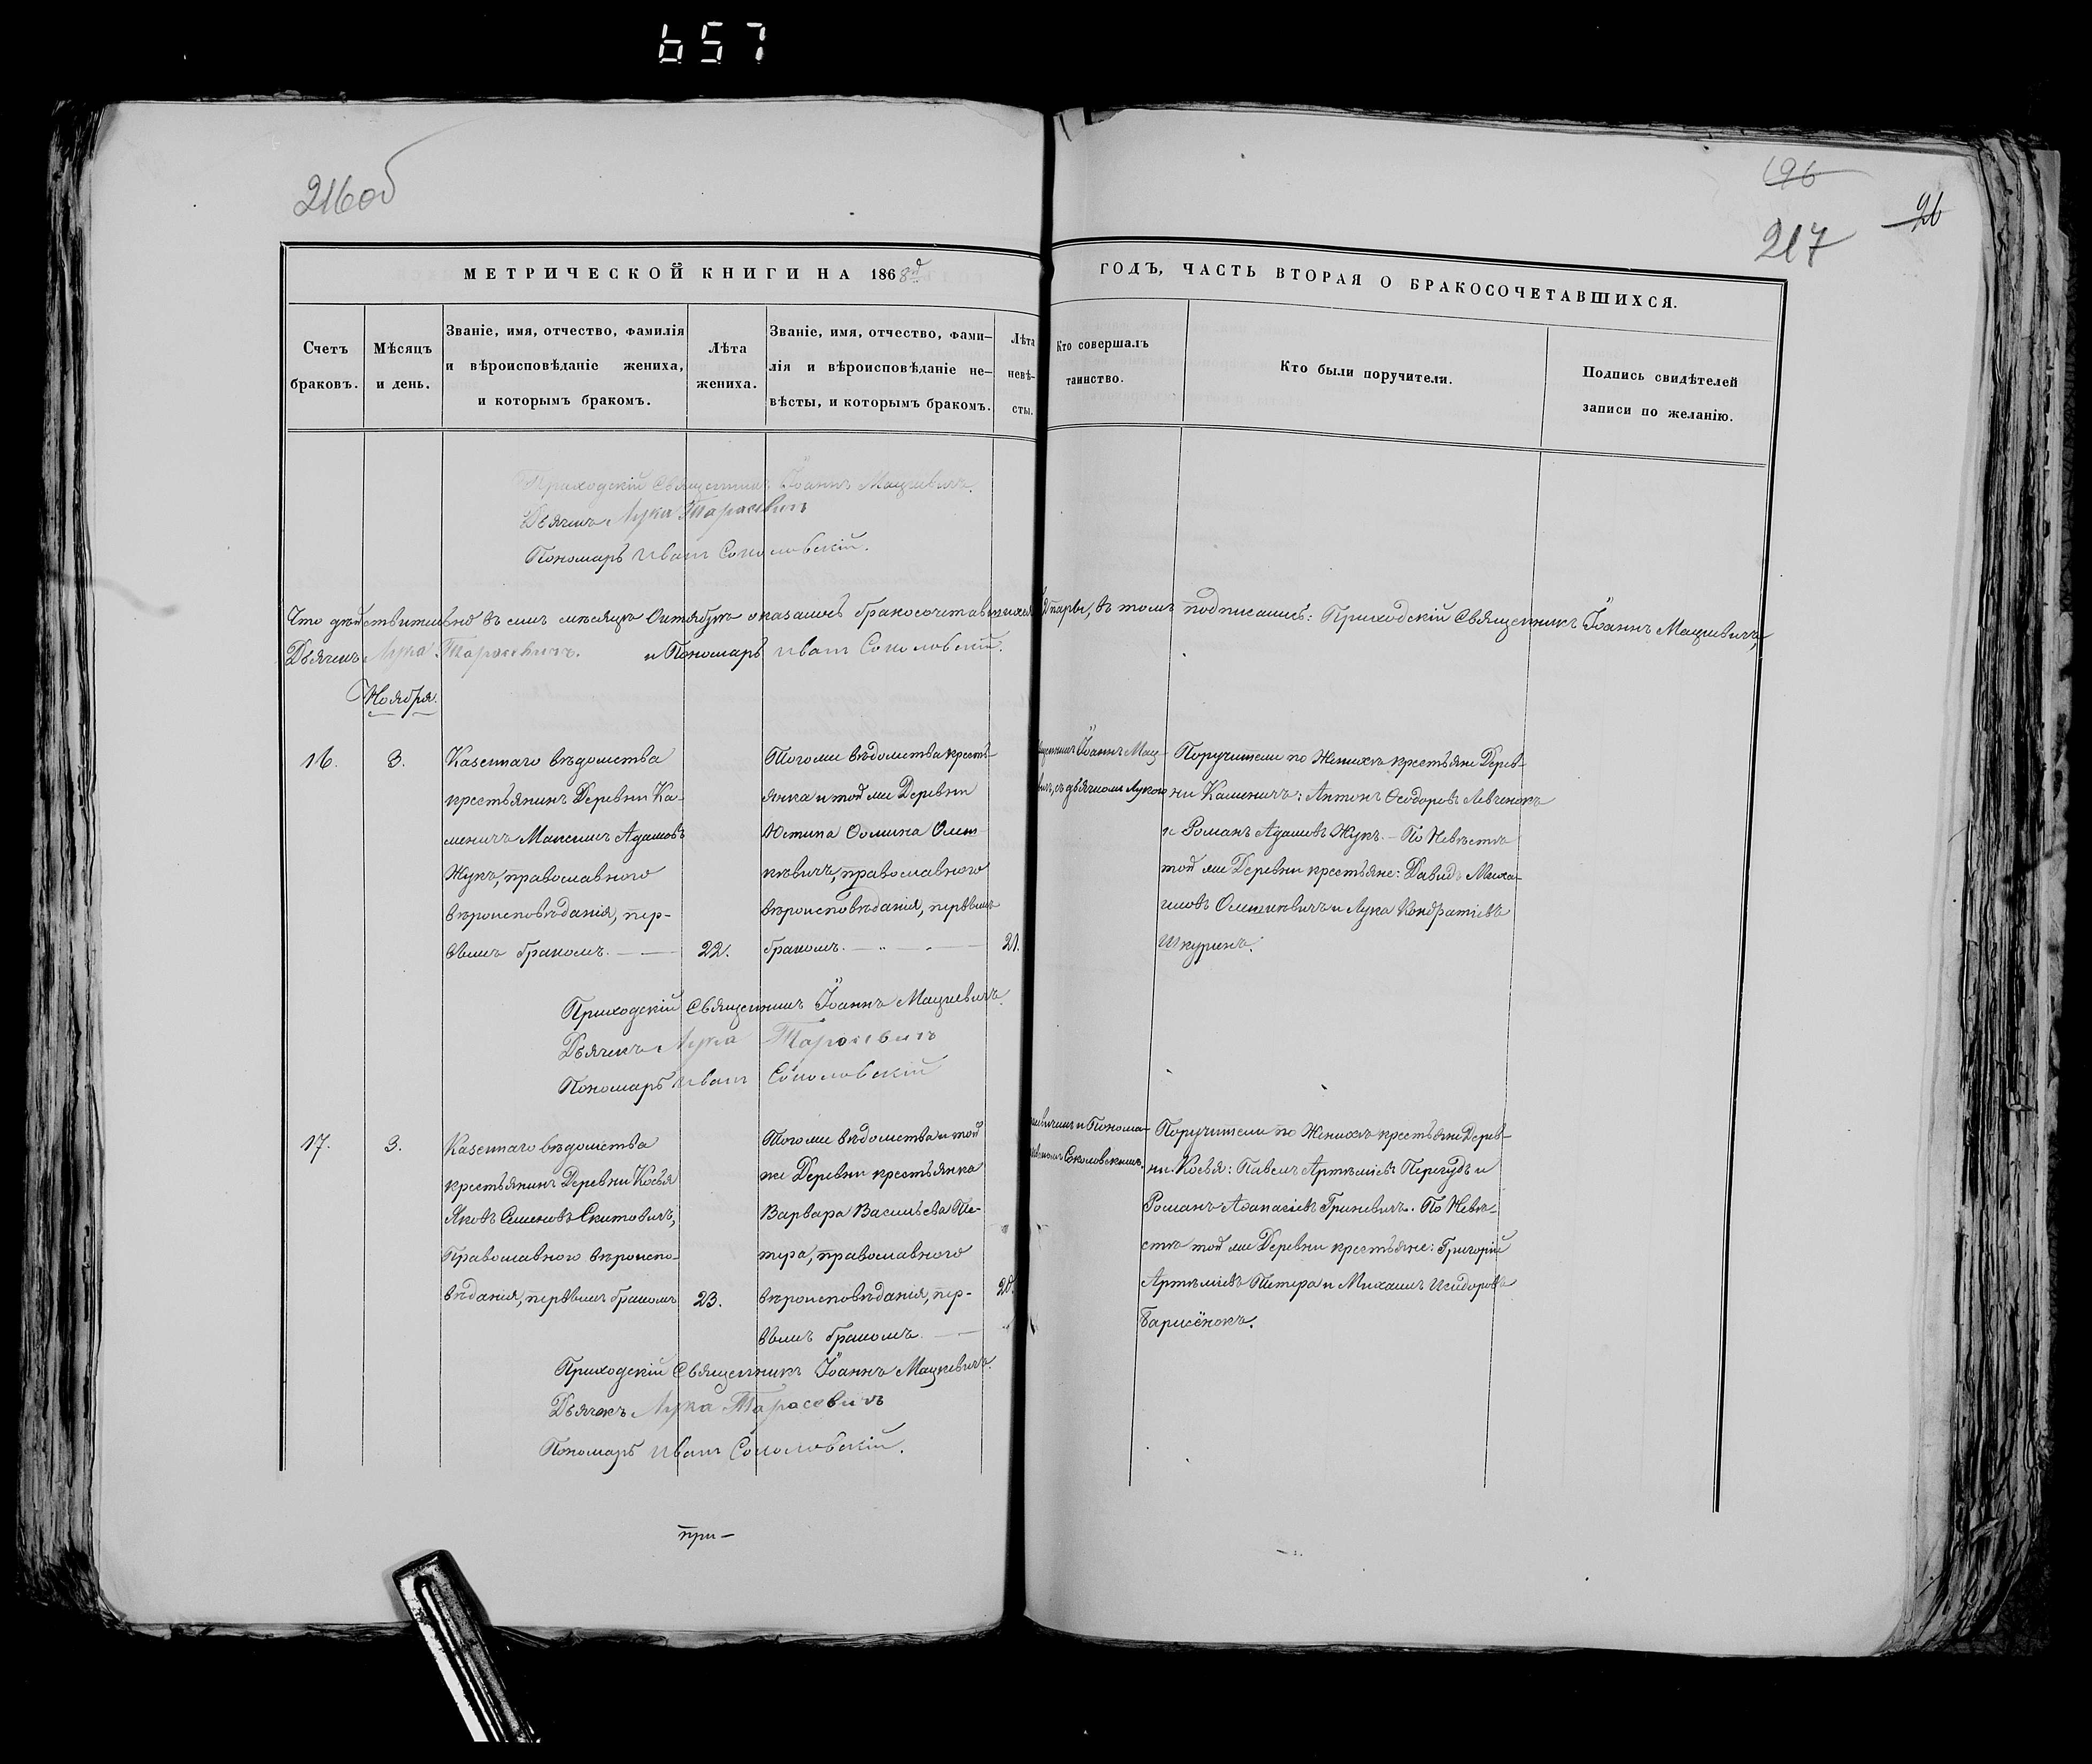 657
216об
196
26
217
МЕТРИЧЕСКОЙ КНИГИ НА 1868й
ГОДЪ, ЧАСТЬ ВТОРАЯ О БРАКОСОЧЕТАВШИХСЯ.
Счетъ браковъ.
Мѣсяцъ и день.
Званіе, имя, отчество, фамилія
и вѣроисповѣданіе жениха,
и которымъ бракомъ.
Лѣта жениха.
Званіе, имя, отчество, фами-
лія и вѣроисповѣданіе не-
вѣсты, и которымъ бракомъ.
Лѣта невѣ-
сты.
Кто совершалъ
таинство.
Кто были поручители.
Подпись свидѣтелей
записи по желанію.
Приходскій Священникъ Іоаннъ Мацкевичъ.
Дьячекъ Лука Тарасевичъ
Пономарь Иванъ Соколовскій.
Что дѣйствительно въ семъ мѣсяцѣ Октябрѣ оказалось бракосочетавшихся пары, въ томъ подписались: Приходскій Священникъ Іоаннъ Мацкевичъ,
Дьячекъ Лука Тарасевичъ. и Пономарь Иванъ Соколовскій.
Ноября.
16.
3.
Казеннаго вѣдомства
крестьянинъ Деревни Ка-
меничъ Максимъ Адамовъ
Жукъ, православного
вѣроисповѣданія, пер-
вымъ бракомъ.
22.
Того же вѣдомства кресть-
янка и той же Деревни
Юстина Фомина Олеш-
кѣвичъ, православного
вѣроисповѣданія, первымъ
бракомъ.
21.
Іоаннъ Мац-
съ дьячкомъ Лукою
Поручители по Женихѣ крестьяне Дерев-
ни Каменичъ: Антонъ Ѳеодоровъ Левченокъ
и Романъ Адамовъ Жукъ. - По Невѣстѣ
той же Деревни крестьяне: Давидъ Миха-
иловъ Олешкѣвичъ и Лука Кондратіевъ
Шкуринъ.
Приходскій Священникъ Іоаннъ Мацкевичъ.
Дьячекъ Лука Тарасевичъ
Пономарь Иванъ Соколовскій
17.
3.
Казеннаго вѣдомства
крестьянинъ Деревни Косья
Яковъ Семеновъ Скитовичъ,
Православного вѣроиспо-
вѣданія, первымъ бракомъ
23.
Того же вѣдомства и той
же Деревни крестьянка
Варвара Васильева Пе-
тера, православного
вѣроисповѣданія, пер-
вымъ бракомъ.
20.
и Понома-
Соколовскимъ.
Поручители по Женихѣ крестьяне Дерев-
ни Косья: Павелъ Артѣміевъ Перегудъ и
Романъ Аѳанасіевъ Гриневичъ. По Невѣ-
стѣ той же Деревни крестьяне: Григорій
Артѣміевъ Петера и Михаилъ Исидоровъ
Барисёнокъ.
Приходскій Священникъ Іоаннъ Мацкевичъ.
Дьячекъ Лука Тарасевичъ
Пономарь Иванъ Соколовскій.
при-